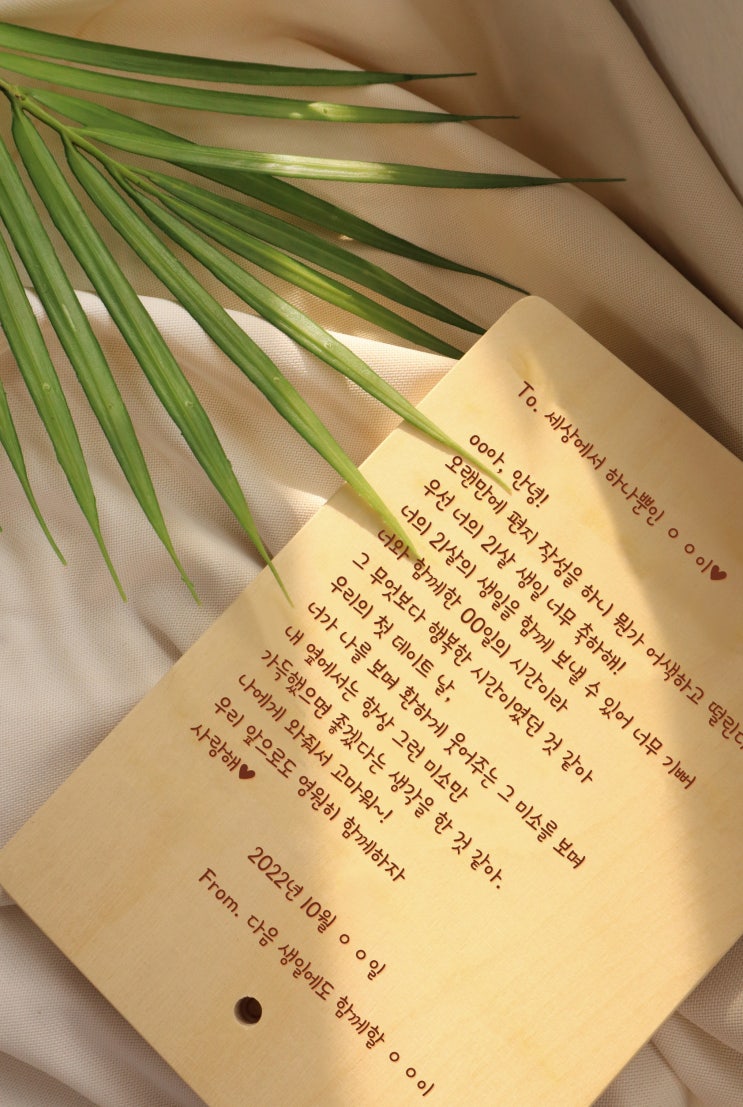 To. 세상에서 하나뿐인 ㅇㅇ이♥
ㅇㅇ아, 안녕!
오랜만에 편지 작성을 하니 뭔가 어색하고 떨린다
우선 너의 21살 생일 너무 축하해!
너의 21살의 생일을 함께 보낼 수 있어 너무 기뻐
너와 함께한 00일의 시간이라
그 무엇보다 행복한 시간이였던 것 같아
우리의 첫 데이트 날,
너가 나를 보며 환하게 웃어주는 그 미소를 보며
내 옆에서는 항상 그런 미소만
가득했으면 좋겠다는 생각을 한 것 같아.
나에게 와줘서 고마워~!
우리 앞으로도 영원히 함께하자
사랑해♥
2022년 10월 ㅇㅇ일
From. 다음 생일에도 함께할 ㅇㅇ이